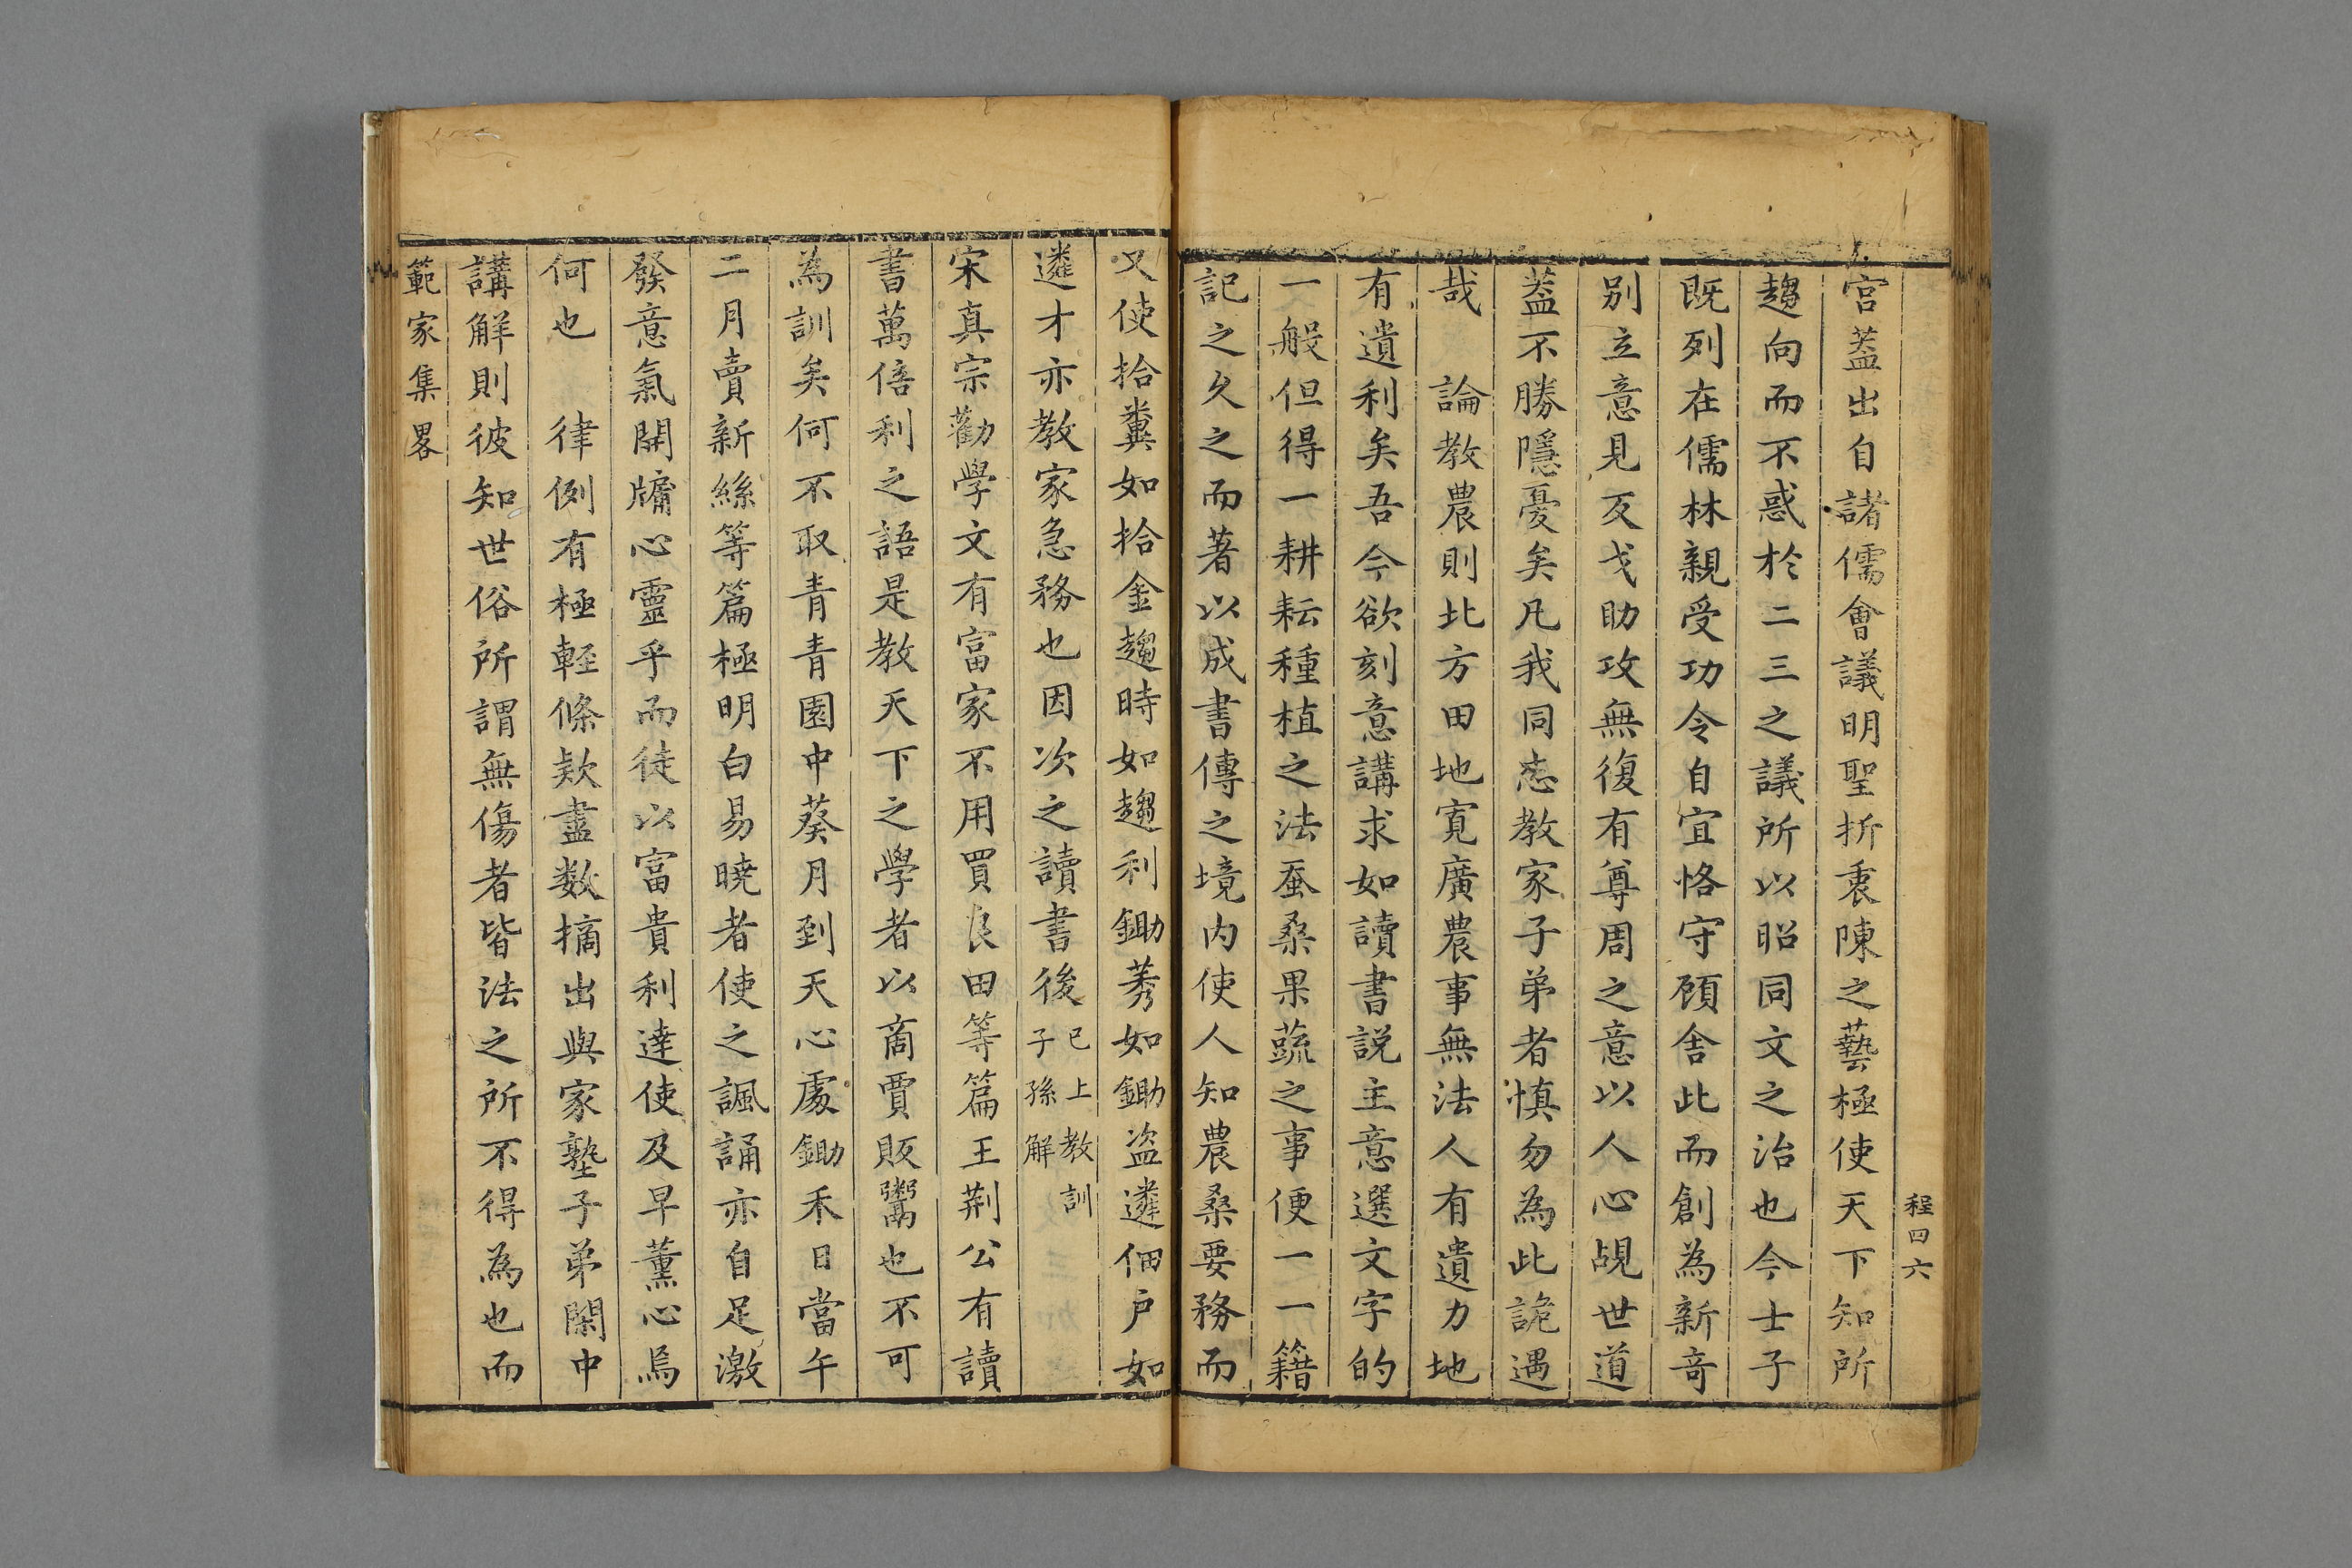 程四六
宮葢出自諸儒會議明聖折衷陳之藝極使天下知所
趨向而不惑於二三之議所以昭同文之治也今士子
既列在儒林親受功令自宜恪守顧舍此而創為新竒
别立意見反戈助攻無復有尊周之意以人心覘世道
葢不勝隱憂矣凡我同志教家子弟者慎勿為此詭遇
哉　論教農則北方田地寛廣農事無法人有遺力地
有遺利矣吾今欲刻意講求如讀書説主意選文字的
一般但得一耕耘種植之法蚕桑果蔬之事便一一籍
記之久之而著以成書傳之境内使人知農桑要務而
又使拾糞如拾金趨時如趨利鋤莠如鋤盗遴佃户如
遴才亦教家急務也因次之讀書後已上教訓子孫解
宋真宗勸學文有富家不用買良田等篇王荆公有讀
書萬倍利之語是教天下之學者以啇賈販鬻也不可
為訓矣何不取青青園中葵月到天心處鋤禾日當午
二月賣新絲等篇極明白易曉者使之諷誦亦自足激
發意氣開牖心靈乎而徒以富貴利達使及早薰心焉
何也　律例有極輕條欵盡数摘出與家塾子弟閑中
講解則彼知世俗所謂無傷者皆法之所不得為也而
範家集畧